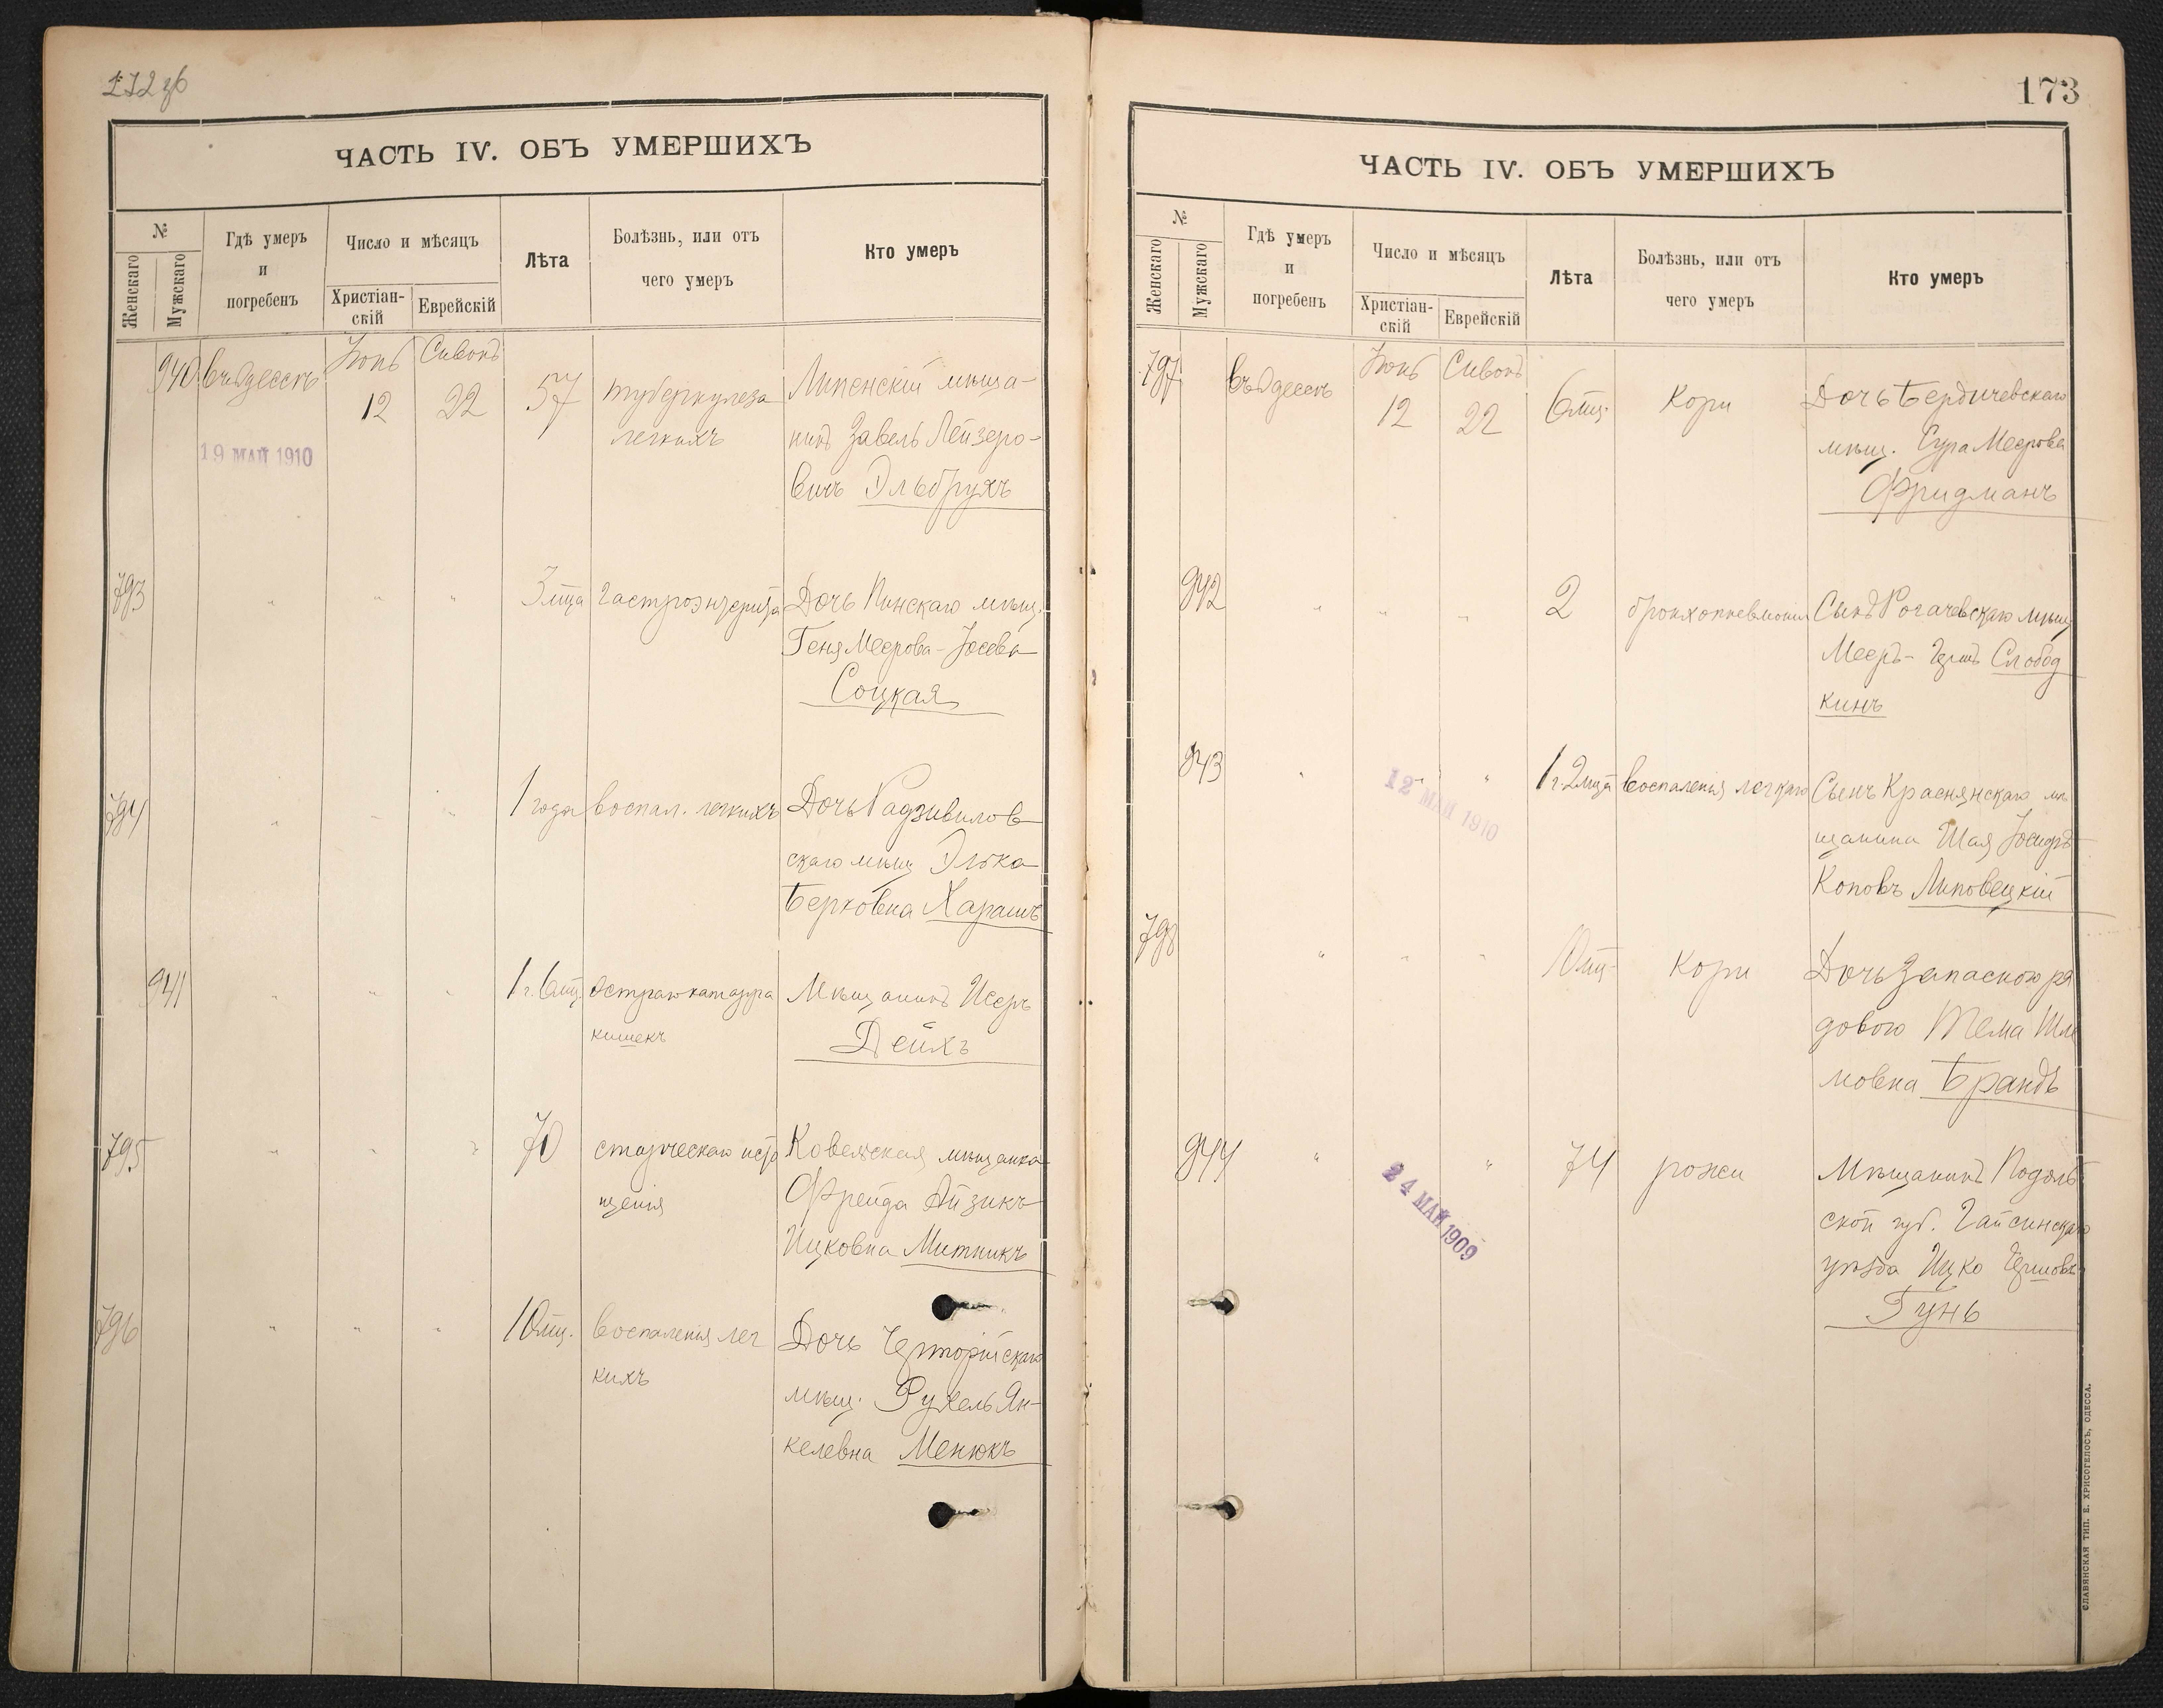 172 об
ЧАСТЬ IV. ОБЪ УМЕРШИХЪ
№
Женскаго
Мужскаго
Гдѣ умеръ
и
погребенъ
Число и мѣсяцъ
Христіан-
скій
Еврейскій
Лѣта
Болѣзнь, или отъ
чего умеръ
Кто умеръ
940 въ Одессѣ Іюнь 12 Сивонъ 22 57 туберкулеза Липенскій мѣща-
легкихъ нинъ Завель Лейзеро-
19 МАЙ 1910 вичъ Эльбрухъ
793 " " " 3 мѣца гастроэнтерита Дочь Пинскаго мѣщ.
Геня Меерова-Іосева
Соцкая
794 " " " 1 года воспал. легкихъ Дочь Радзивилов
скаго мѣщ Элька
Берковна Харашъ
941 " " " 1 г. 6 мц. остраго катарра Мѣщанинъ Исеръ
кишекъ Дейхъ
795 " " " 70 старческаго исто Ковельская мѣщанка
щенія Фрейда Айзикъ
Ицковна Митникъ
796 " " " 10 мц. воспаленія лег Дочь Чарторійскаго
кихъ мѣщ. Рухель Ян-
келевна Менюкъ
173
ЧАСТЬ IV. ОБЪ УМЕРШИХЪ
№
Женскаго
Мужскаго
Гдѣ умеръ
и
погребенъ
Число и мѣсяцъ
Христіан-
скій
Еврейскій
Лѣта
Болѣзнь, или отъ
чего умеръ
Кто умеръ
797 въ Одессѣ Іюнь 12 Сивонъ 22 6 мц. Кори Дочь Бердичевскаго
мѣщ. Сура Меерова
Фридманъ
942 " " " 2 бронхопневмонія Сынъ Рогачевскаго мѣщ
Мееръ-Гершъ Слобод
кинъ
943 " " " 1 г. 2 мца воспаленія легкаго Сынъ Краснянскаго мѣ
12 МАЙ 1910 щанина Шая
Коповъ Липовецкій
798 " " " 10 мц. Кори Дочь запаснаго ря
доваго Тема Шле
мовна Брандъ
944 " " 74 рожи Мѣщанинъ Подоль
24 МАЙ 1909 ской губ. Гайсинскаго
уѣзда Ицко Гершовъ
Гунь
СЛАВЯНСКАЯ ТИП. Е. ХРИСОГЕЛОСЪ, ОДЕССА.